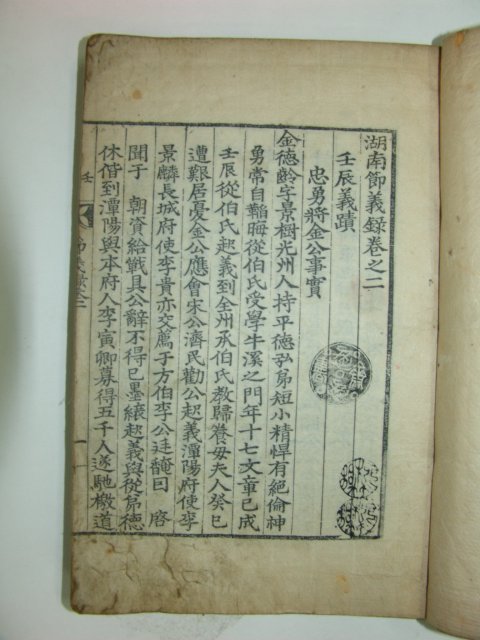 湖南節義録卷之二
壬辰義蹟
忠勇將金公事實
金德齡字景樹光州人持平德弘弟短小精悍有絶倫神
勇常自韜晦從伯氏受學牛溪之門年十七文章已成
壬辰從伯氏起義到全州承伯氏教歸養母夫人癸巳
遭艱居憂金公應會宋公濟民勸公起義潭陽府使李
景麟長城府使李貴亦交薦于方伯李公廷馣曰啓
聞于 朝資給戰具公辭不得已墨縗起義與從弟德
休偕到潭陽與本府人李寅卿募得五千人遂馳檄道
壬